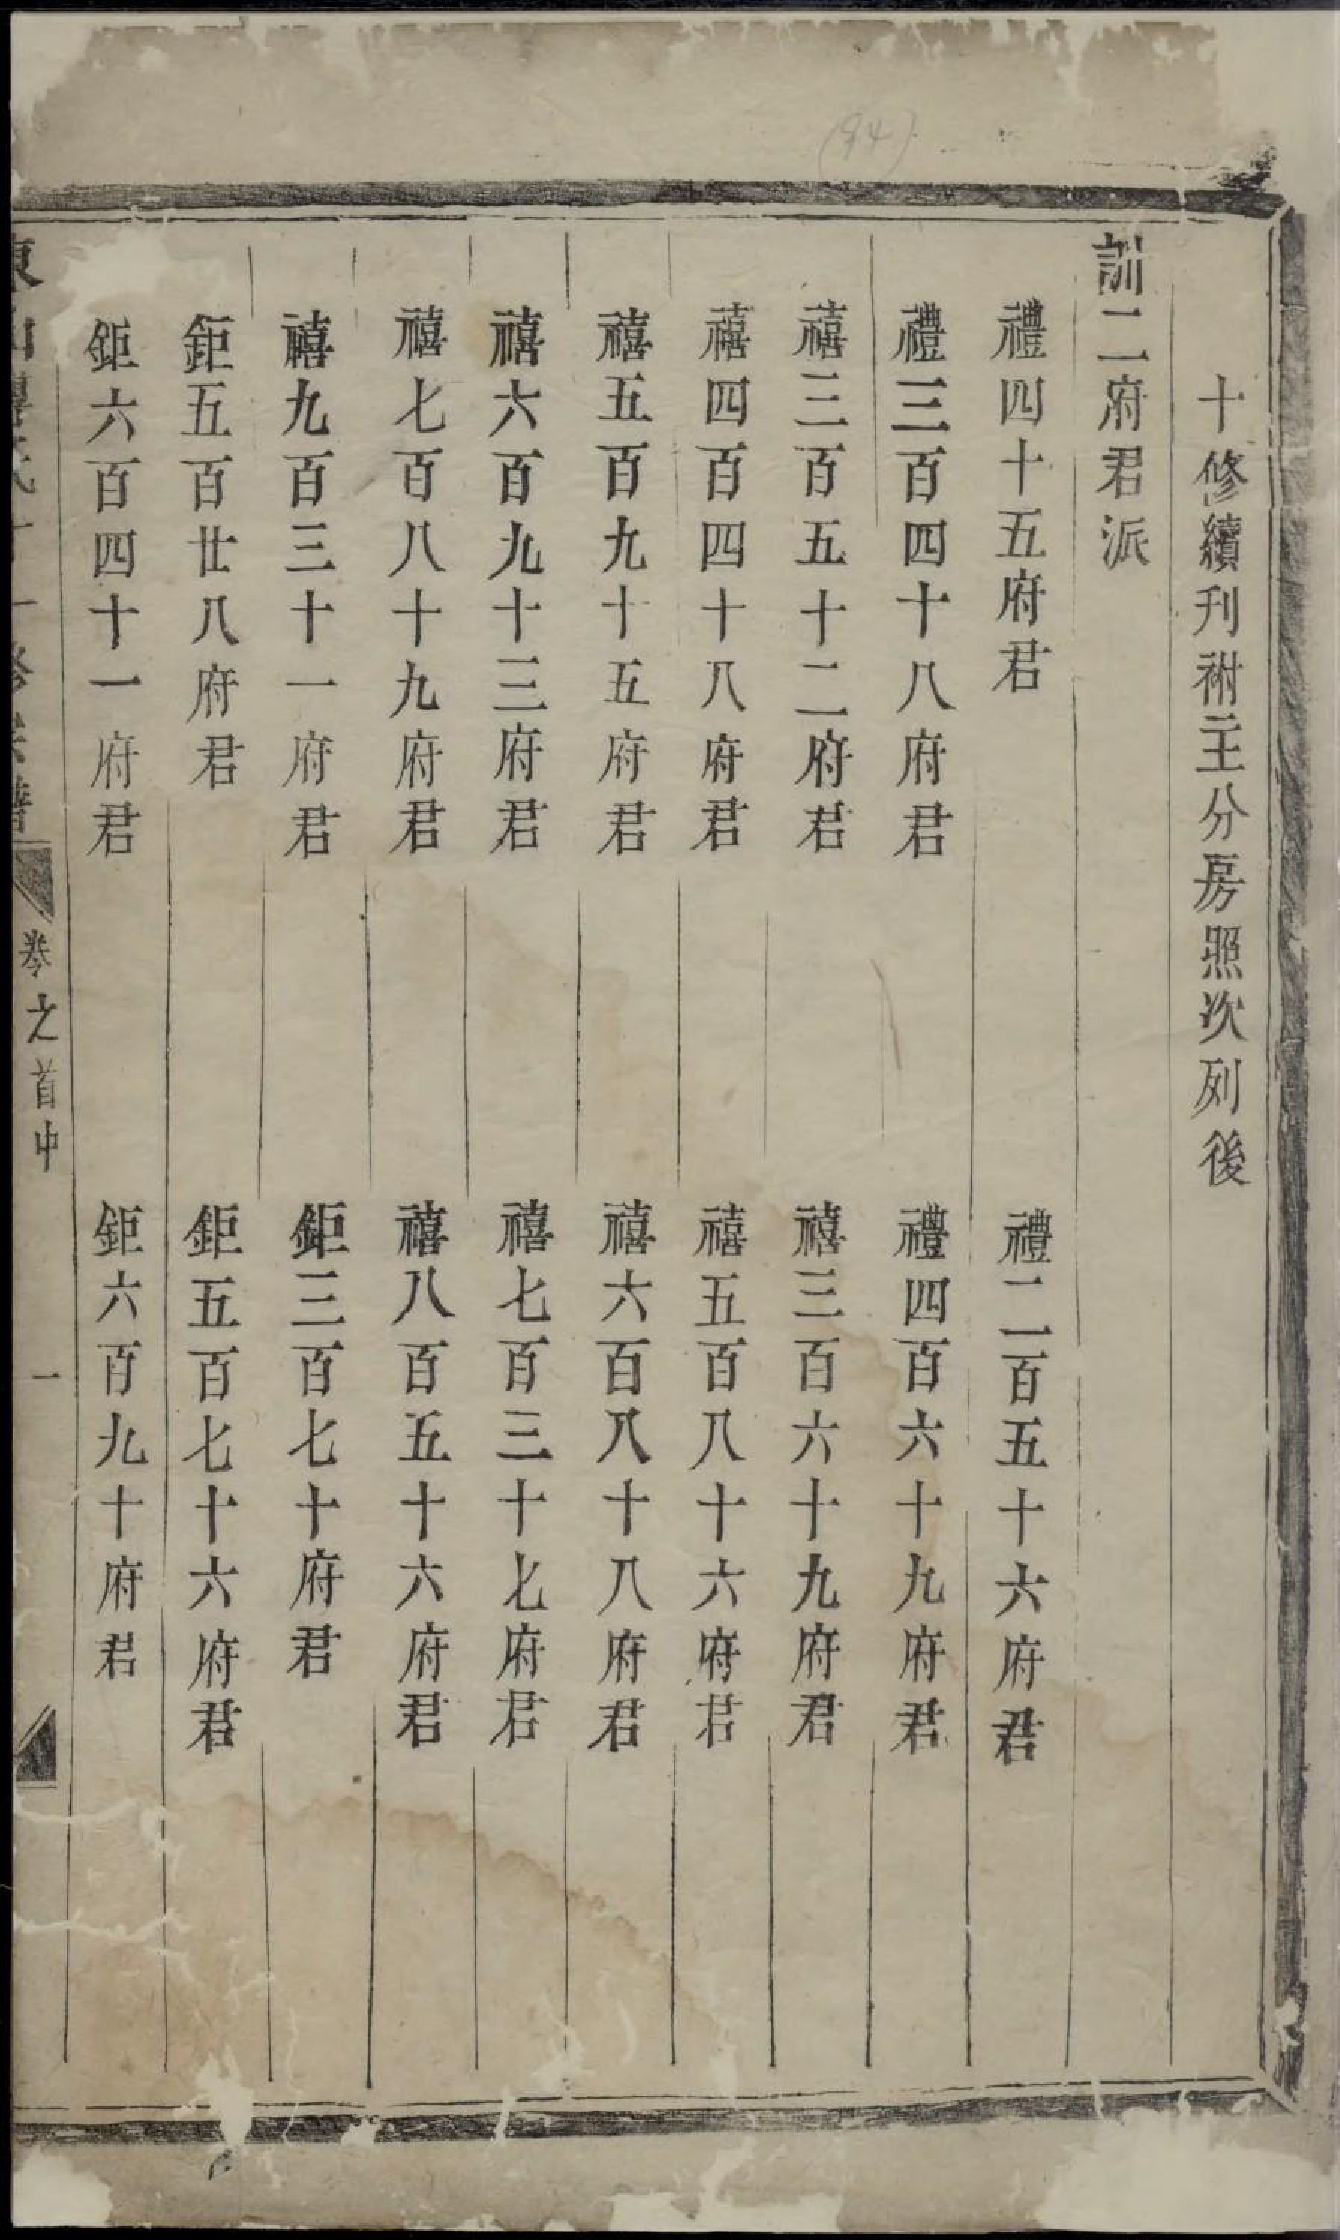 十修續刊祔主分房照次列後
訓二府君派
禮四十五府君
禮二百五十六府君
禮三百四十八府君
禮四百六十九府君
禧三百五十二府君
禧三百六十九府君
禧四百四十八府君
禧五百八十六府君
禧五百九十五府君
禧六百八十八府君
禧六百九十三府君
禧七百三十七府君
禧七百八十九府君
禧八百五十六府君
禧九百三十一府君
鉅三百七十府君
鉅五百廿八府君
鉅五百七十六府君
鉅六百四十一府君
鉅六百九十府君
卷之首中
一
(94)